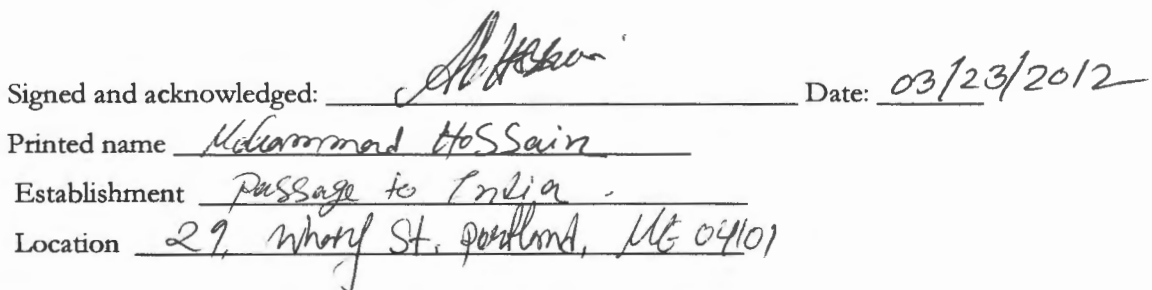 Signed and acknowledged: Date: 03/23/2012
Printed name Mohammad Hossain
Establishment Passage to India.
Location 29, Wharf St. portland, ME 04101